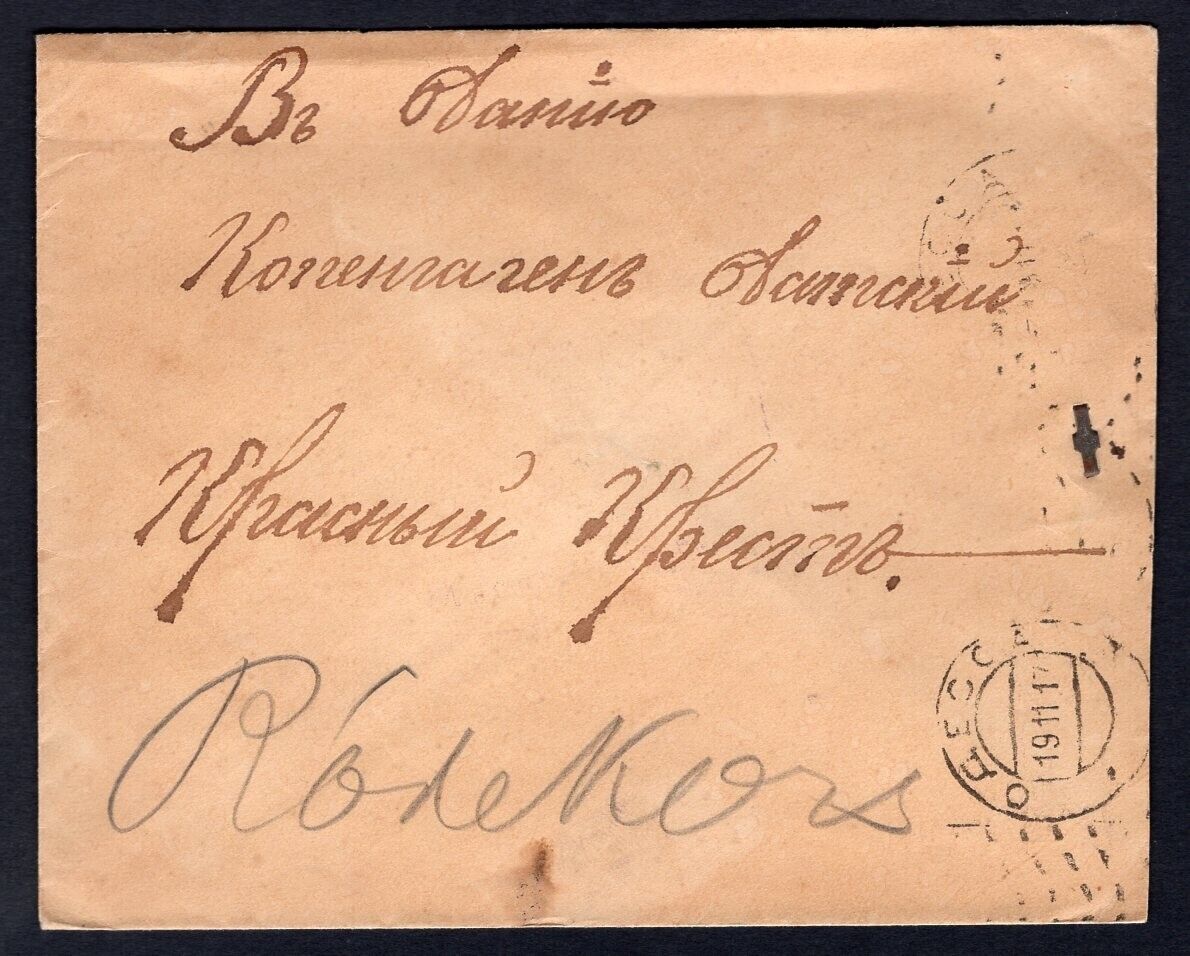 Въ Данію
Копенгагенъ Датскій
Красный Крестъ.
Róde Kors
ОДЕССА
19 11 17